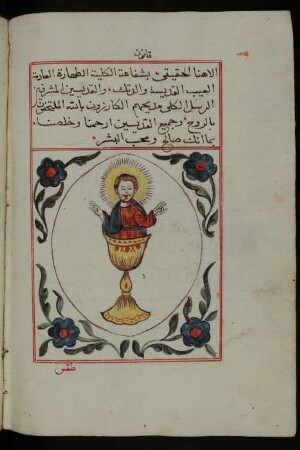 قانون
الاهنا الحقيقي بشفاعة الكلية الطهارة العادمة
العيب القديسة والدتك والقديسين المشرفين
الرسل الكلي مديحهم
بالروح وجميع القديسين ارحمنا وخلصنا
بما انك صالح ومحب البشر
طقس